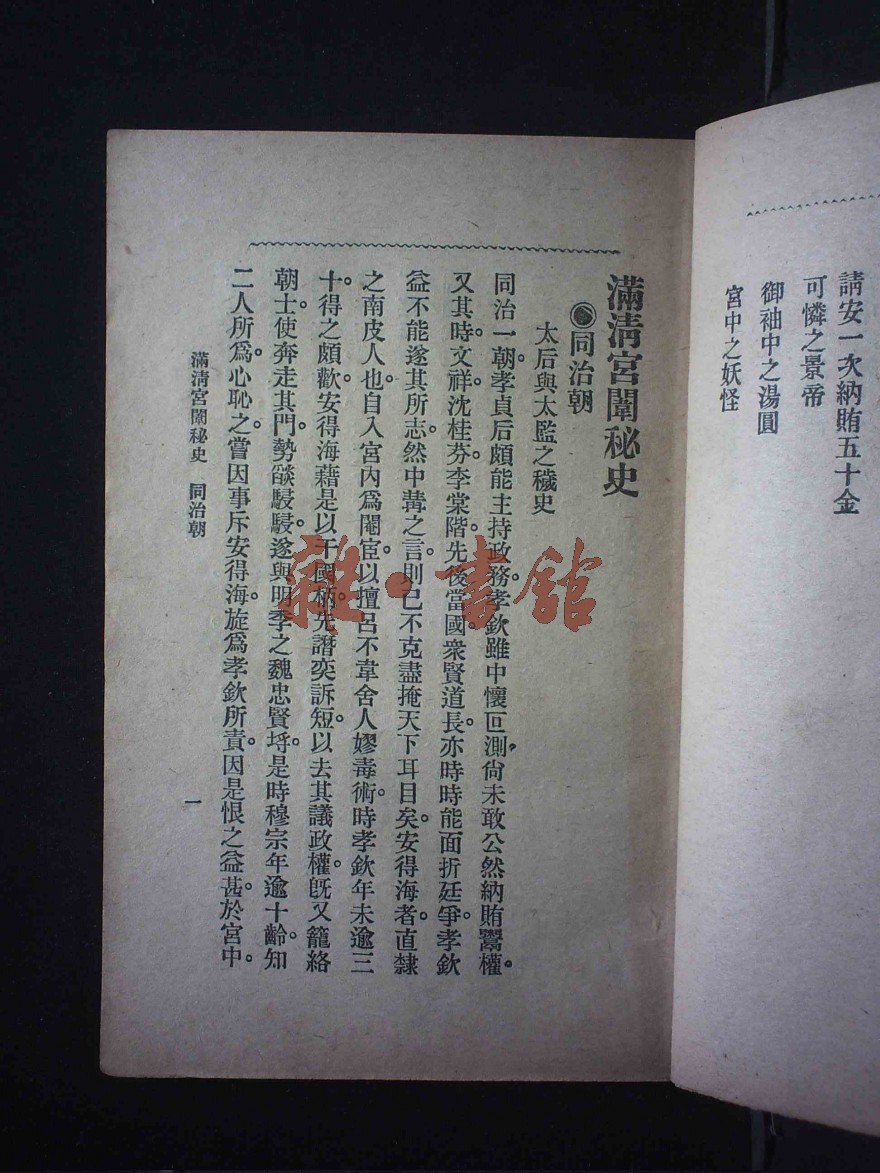 請安一次納賄五十金
可憐之景帝
御袖中之湯圓
宮中之妖怪
滿淸宮闈秘史
同治朝
太后與太監之穢史
同治一朝。孝貞后頗能主持政務。孝欽雖中懷叵測。尙未敢公然納賄鬻權。
又其時文祥沈桂芬李棠階。先後當國。衆賢道長。亦時時能面折廷爭。孝欽
益不能遂其所志。然中冓之言。則已不克盡掩天下耳目矣。安得海者。直隸
之南皮人也。自入宮內爲閹宦。以擅呂不韋舍人嫪毒術。時孝欽年未逾三
十。得之頗歡。安得海藉是以干國柄。先譖奕訴短。以去其議政權。旣又籠絡
朝士。使奔走其門。勢燄駸駸。遂與明季之魏忠賢埒。是時穆宗年逾十齡。知
二人所爲。心恥之。嘗因事斥安得海。旋爲孝欽所責。因是恨之益甚。於宮中。
滿淸宮闈秘史 同治朝
一
雜·書館